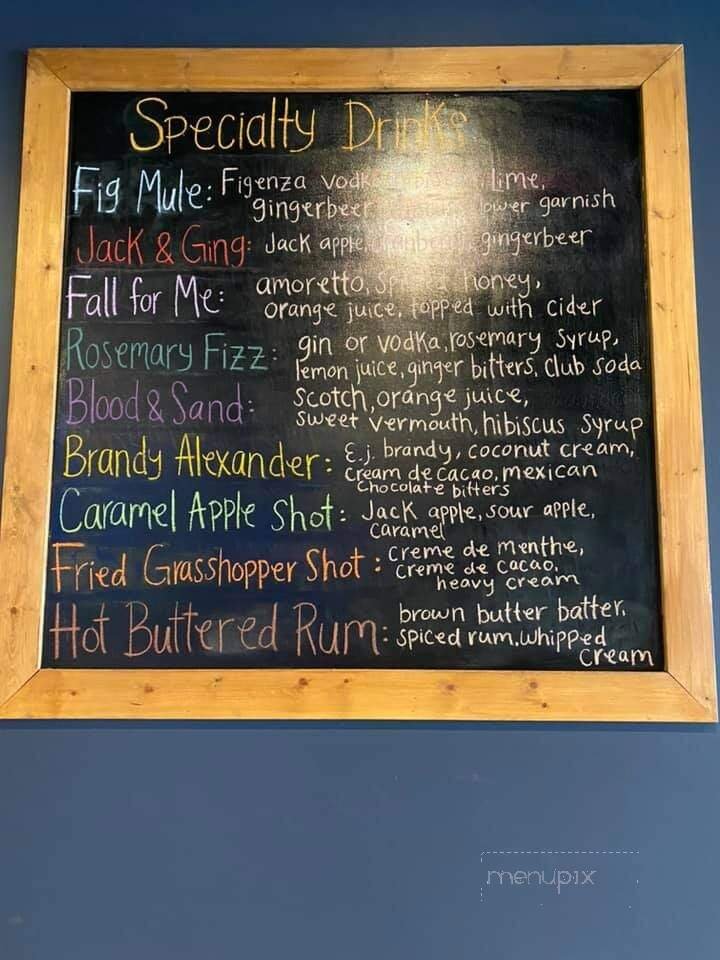 Specialty Drinks
Fig Mule: Figenza vodka lime,
gingerbeer garnish
Jack & Ging: Jack apple, gingerbeer
Fall for Me: amoretto, honey,
orange juice, topped with cider
Rosemary Fizz: gin or vodka, rosemary syrup,
lemon juice, ginger bitters, club soda
Blood & Sand: Scotch, orange juice,
sweet vermouth, hibiscus syrup
Brandy Alexander: E.j. brandy, coconut cream,
cream de cacao, mexican
chocolate bitters
Caramel Apple Shot: Jack apple, sour apple,
caramel
Fried Grasshopper Shot: creme de menthe,
creme de cacao,
heavy cream
Hot Buttered Rum: brown butter batter,
spiced rum, whipped
cream
menupix